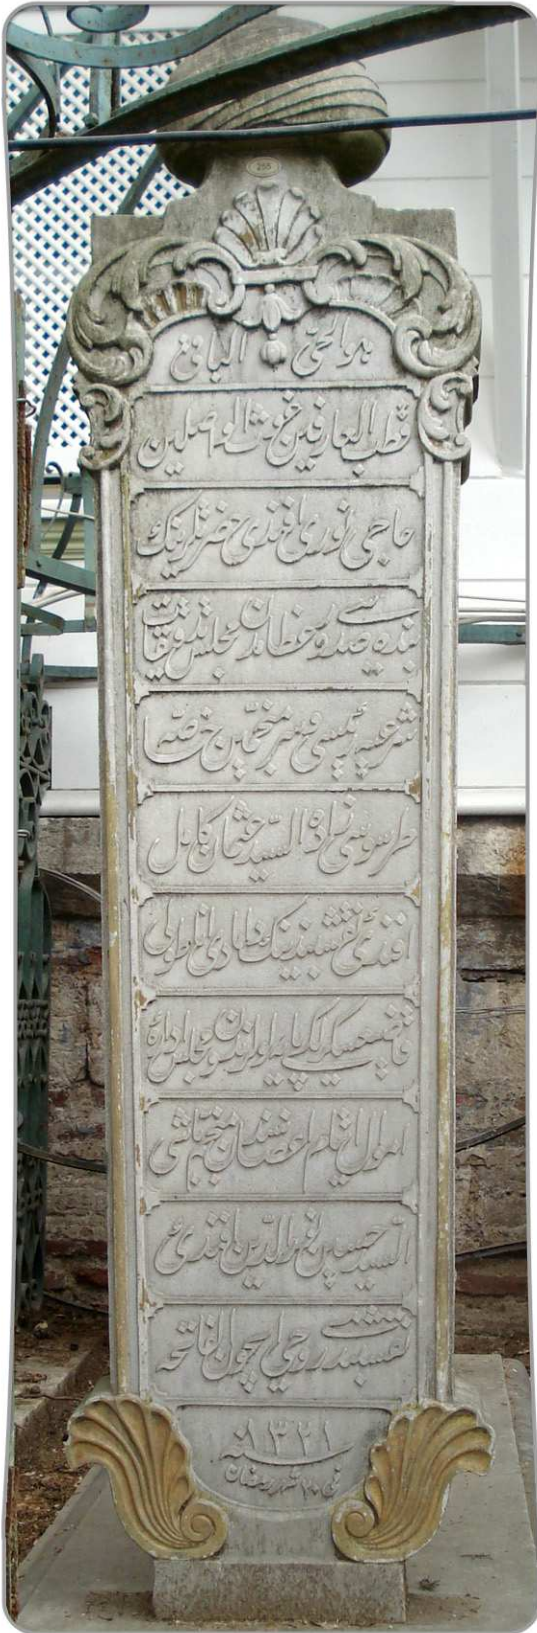 258
هو الحي الباقي
قطب العارفين غوث الواصلين
حاجى نورى افندى حضرتلرينك
بنده سى صدور عظامدن مجلس تدقيقات
شرعيه رئيسى وسر منجمين خاصه
طرسوسى زاده السيد عثمان كامل
افندئ نقشبندينك دامادى اناطولى
قاضيعسكرلكى پايه لولرندن ومجلس اداره
اموال ايتام اعضاسندن منجم باشى
السيد حسين افندئ
نقشبندى روحيچون الفاتحه
سنه ١٣٢١
فى ٢٠ شهر رمضان